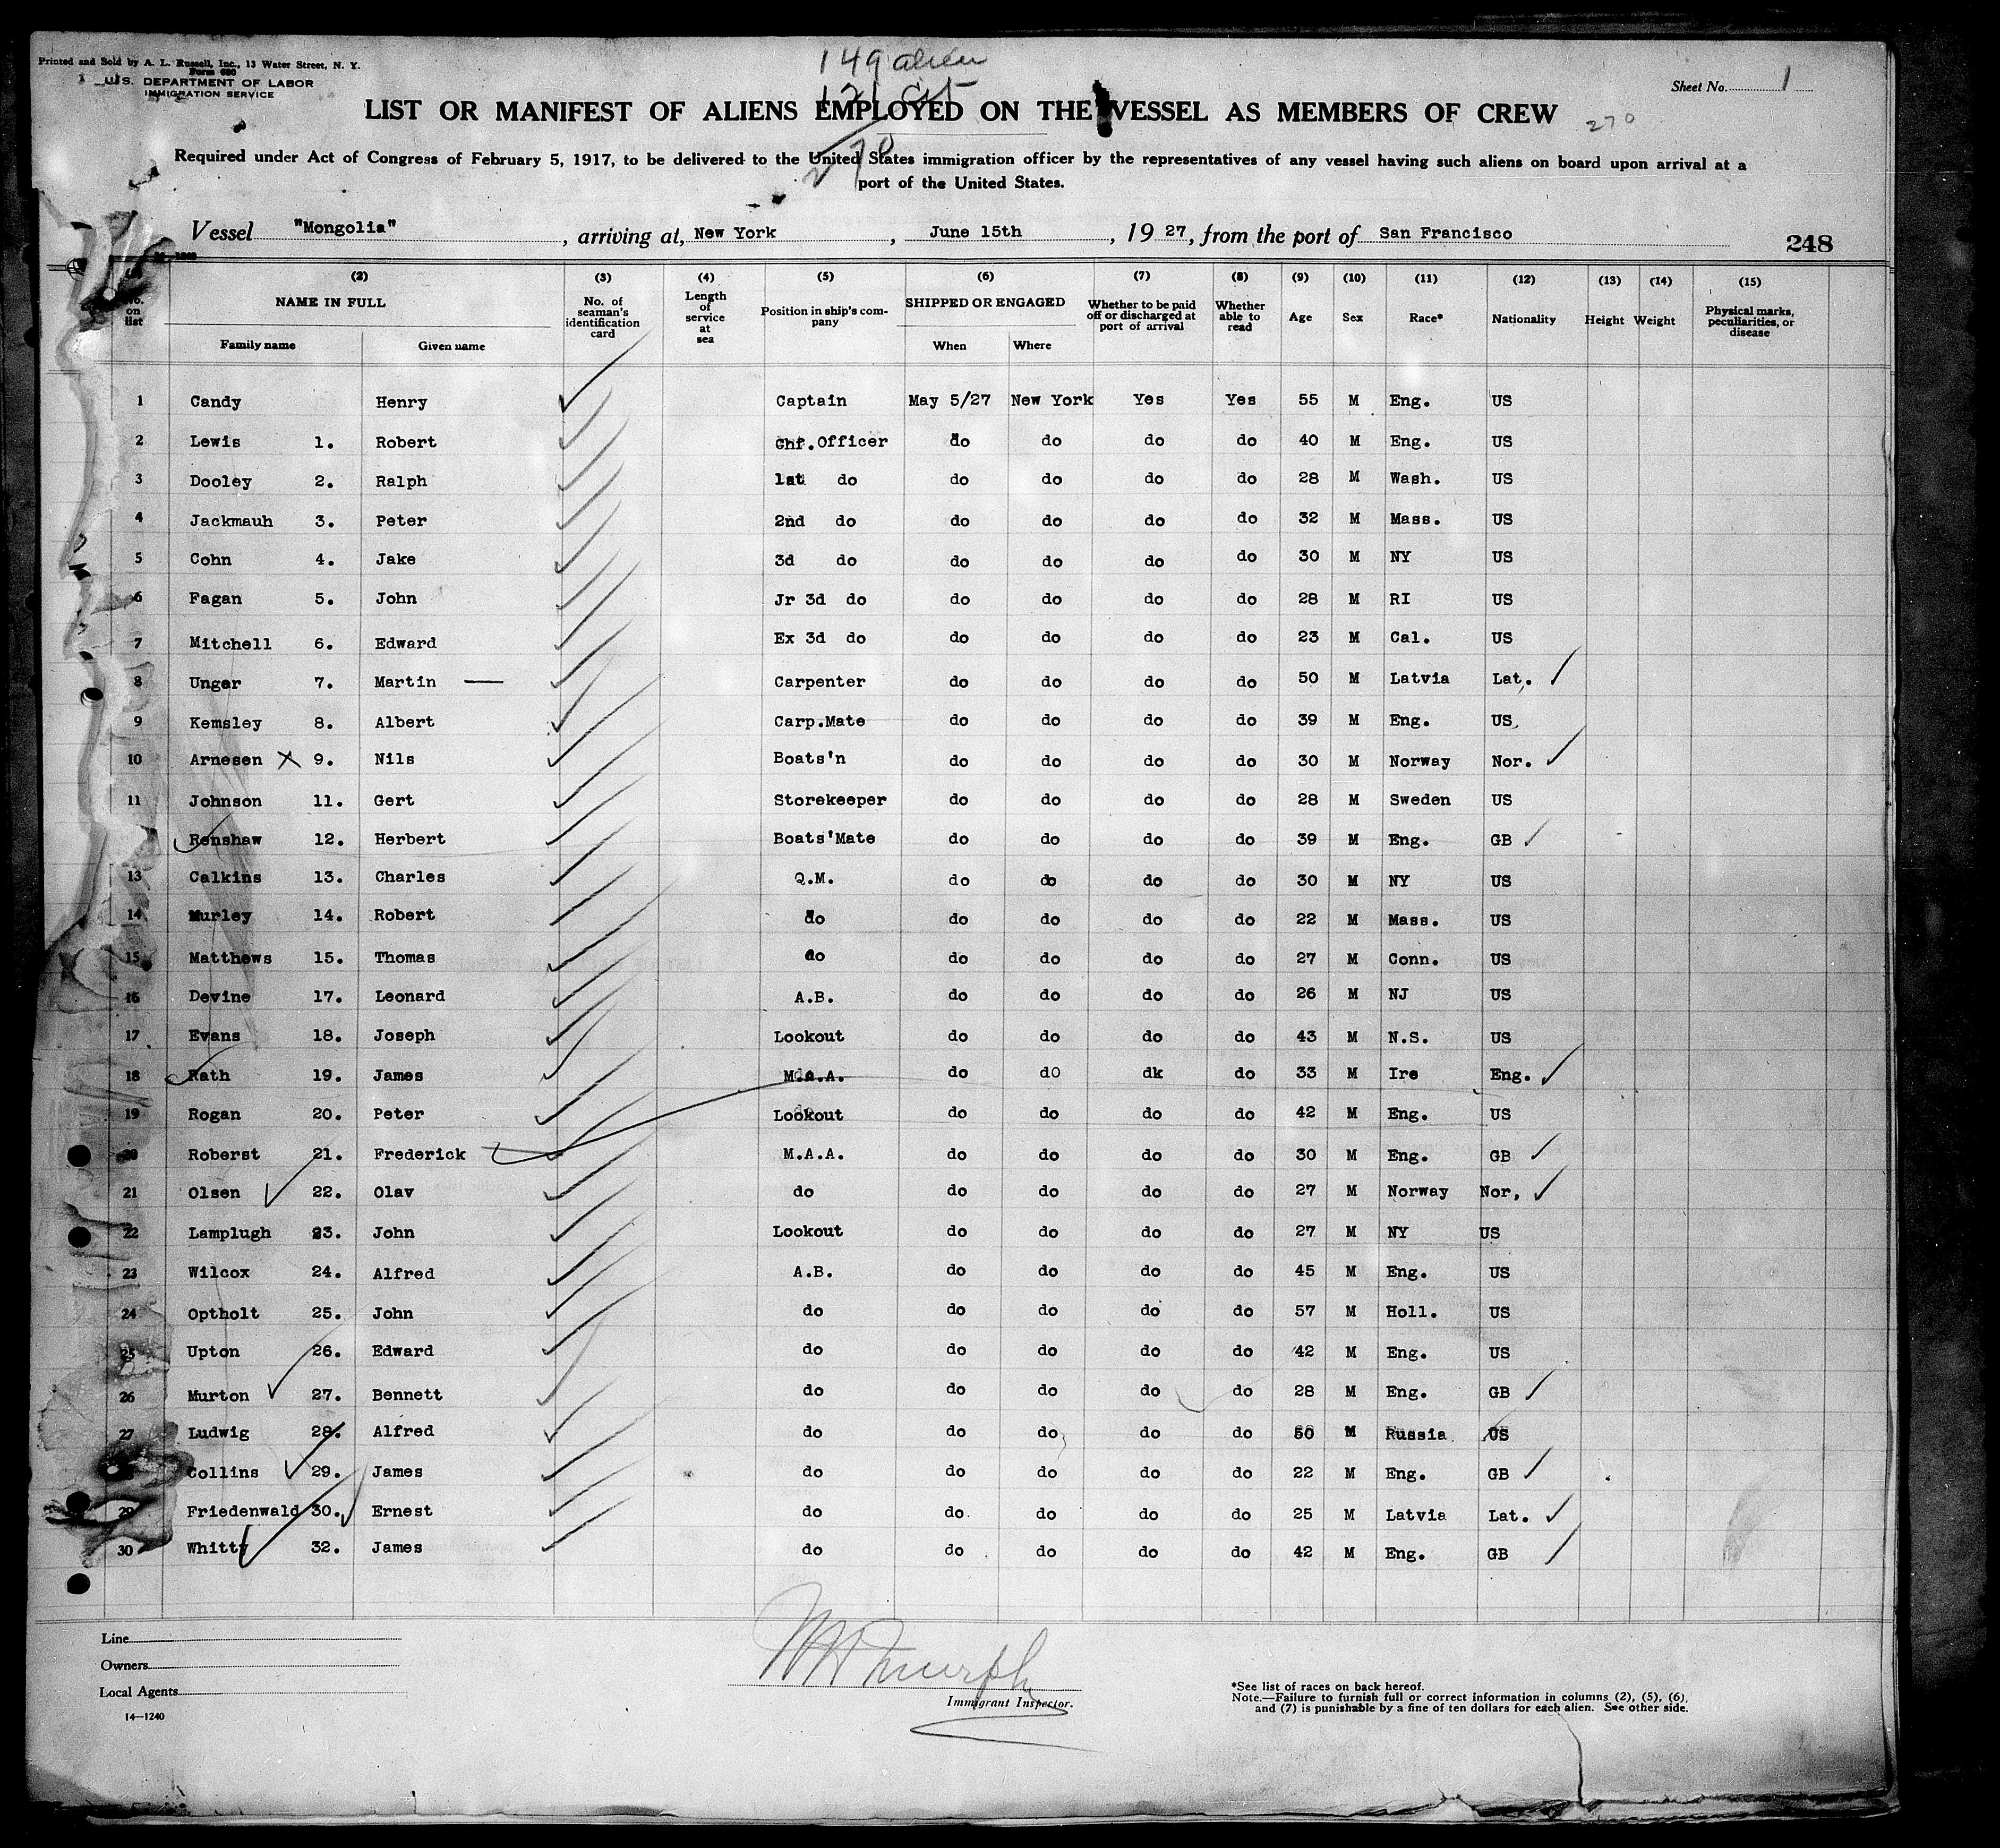 Printed and Sold by A. L. Russell, Inc., 13 Water Street, N. Y.
Form 680
U.S. DEPARTMENT OF LABOR
IMMIGRATION SERVICE
149 alien
121 cit
270
Sheet No. 1
LIST OR MANIFEST OF ALIENS EMPLOYED ON THE VESSEL AS MEMBERS OF CREW
270
Required under Act of Congress of February 5, 1917, to be delivered to the United States immigration officer by the representatives of any vessel having such aliens on board upon arrival at a
port of the United States.
Vessel "Mongolia", arriving at, New York, June 15th, 1927, from the port of San Francisco
248
(2) (3) (4) (5) (6) (7) (8) (9) (10) (11) (12) (13) (14) (15)
No. on list NAME IN FULL Family name Given name No. of seaman's identification card Length of service at sea Position in ship's company SHIPPED OR ENGAGED When Where Whether to be paid off or discharged at port of arrival Whether able to read Age Sex Race* Nationality Height Weight Physical marks, peculiarities, or disease
1 Candy Henry Captain May 5/27 New York Yes Yes 55 M Eng. US
2 Lewis 1. Robert Chf. Officer do do do do 40 M Eng. US
3 Dooley 2. Ralph 1st do do do do do 28 M Wash. US
4 Jackmauh 3. Peter 2nd do do do do do 32 M Mass. US
5 Cohn 4. Jake 3d do do do do do 30 M NY US
6 Fagan 5. John Jr 3d do do do do do 28 M RI US
7 Mitchell 6. Edward Ex 3d do do do do do 23 M Cal. US
8 Unger 7. Martin — Carpenter do do do do 50 M Latvia Lat.
9 Kemsley 8. Albert Carp.Mate do do do do 39 M Eng. US
10 Arnesen X 9. Nils Boats'n do do do do 30 M Norway Nor.
11 Johnson 11. Gert Storekeeper do do do do 28 M Sweden US
Renshaw 12. Herbert Boats'Mate do do do do 39 M Eng. GB
13 Calkins 13. Charles Q.M. do do do do 30 M NY US
14 Murley 14. Robert do do do do do 22 M Mass. US
15 Matthews 15. Thomas do do do do do 27 M Conn. US
16 Devine 17. Leonard A.B. do do do do 26 M NJ US
17 Evans 18. Joseph Lookout do do do do 43 M N.S. US
18 Rath 19. James M.A.A. do do dk do 33 M Ire Eng.
19 Rogan 20. Peter Lookout do do do do 42 M Eng. US
20 Roberst 21. Frederick M.A.A. do do do do 30 M Eng. GB
21 Olsen 22. Olav do do do do do 27 M Norway Nor.
22 Lamplugh 23. John Lookout do do do do 27 M NY US
23 Wilcox 24. Alfred A.B. do do do do 45 M Eng. US
24 Optholt 25. John do do do do do 57 M Holl. US
25 Upton 26. Edward do do do do do 42 M Eng. US
26 Murton 27. Bennett do do do do do 28 M Eng. GB
27 Ludwig 28. Alfred do do do do do M Russia US
Collins 29. James do do do do do 22 M Eng. GB
29 Friedenwald 30. Ernest do do do do do 25 M Latvia Lat.
30 Whitty 32. James do do do do do 42 M Eng. GB
Line
Owners
Local Agents
14—1240
Immigrant Inspector.
*See list of races on back hereof.
Note.—Failure to furnish full or correct information in columns (2), (5), (6),
and (7) is punishable by a fine of ten dollars for each alien. See other side.